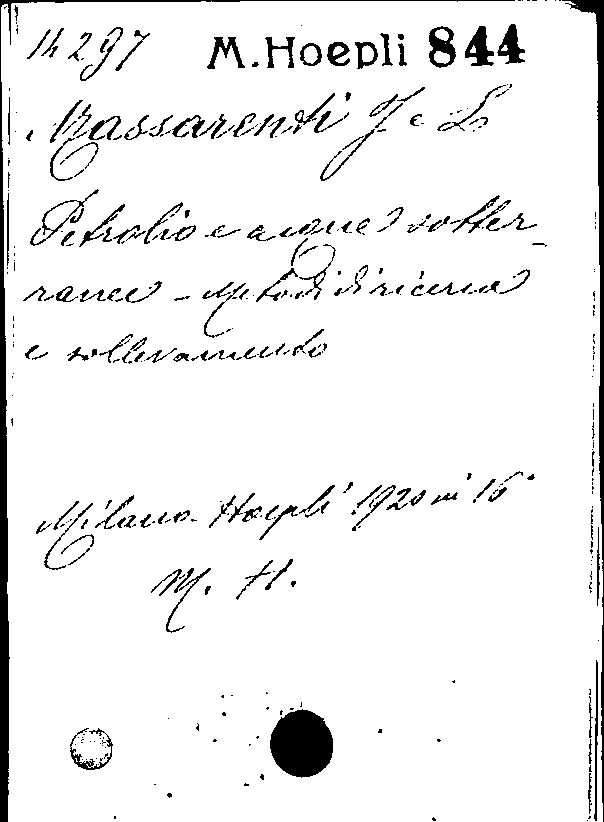 14297 M. Hoepli 844
Massarenti J e L
Petrolio e acque sotter-
ranee - Metodi di ricerca
e sollevamento
Milano Hoepli 1920 in 16°
M. H.